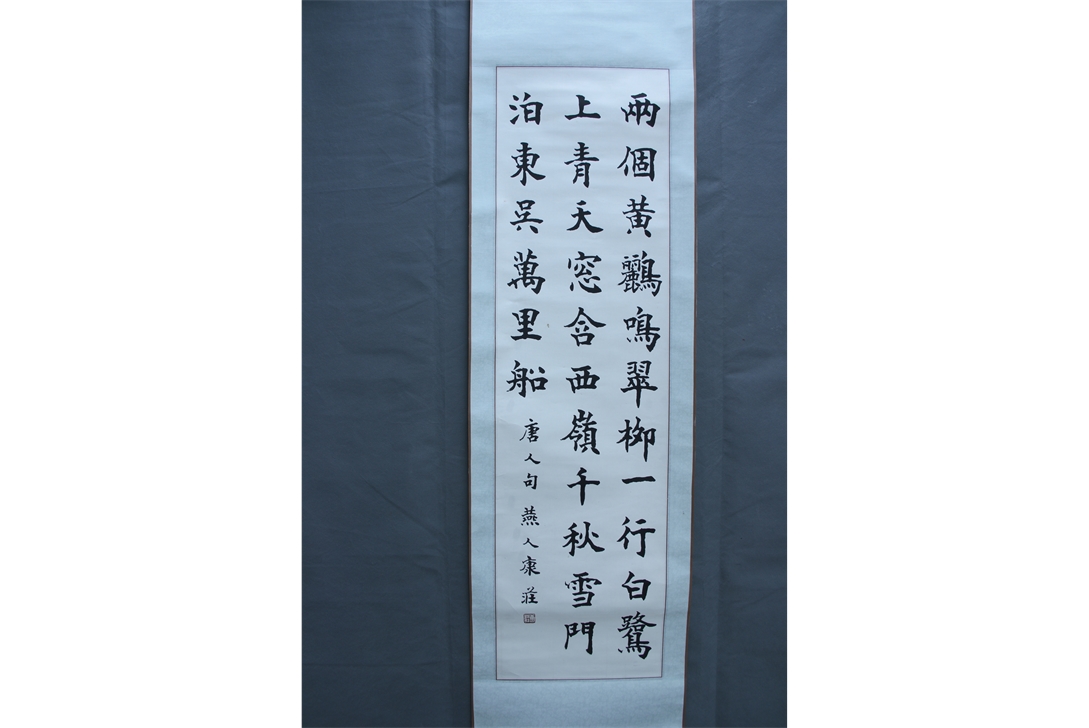 兩個黃鸝鳴翠柳一行白鷺
上青天窓含西嶺千秋雪門
泊東吳萬里船
唐人句燕人康莊